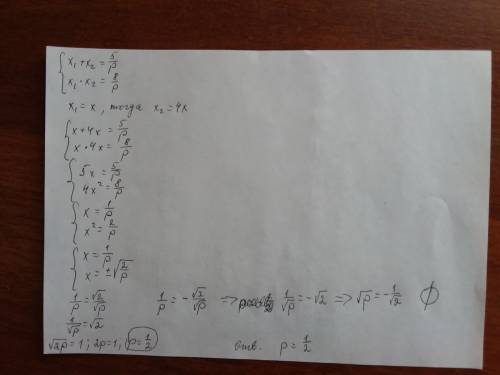 { x₁ + x₂ = 5/p
x₁ · x₂ = 8/p
x₁ = x, тогда x₂ = 4x
{ x + 4x = 5/p
x · 4x = 8/p
{ 5x = 5/p
4x² = 8/p
{ x = 1/p
x² = 2/p
{ x = 1/p
x = ±√(2/p)
1/p = √2/√p    1/p = -√2/√p => 1/√p = -√2 => √p = -1/√2  ∅
1/√p = √2
√2p = 1; 2p = 1; p = 1/2    отв. p = 1/2